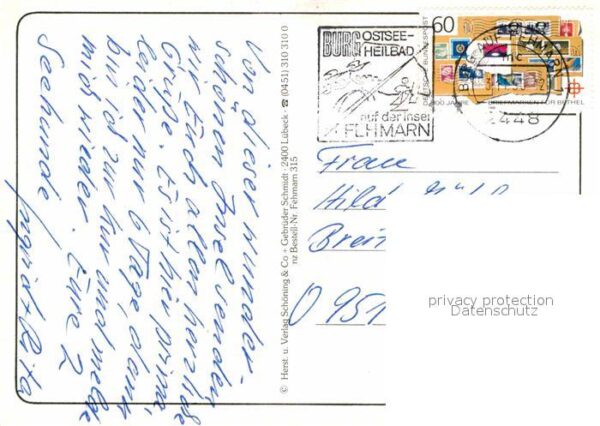 Von dieser wunder-
schönen Insel senden
wir Euch allen herzliche
Grüße. Es ist hier prima,
leider nur 6 Tage, dann
bin ich zur Kur und melde
mich wieder. Eure 2
Seehunde Ingrid + Rita
© Herst. u. Verlag Schöning & Co + Gebrüder Schmidt · 2400 Lübeck · ☎ (0451) 310 310 0
nz Bestell-Nr. Fehmarn 315
BURG OSTSEE-
HEILBAD
auf der Insel
FEHMARN
60
DEUTSCHE BUNDESPOST
100 JAHRE BRIEFMARKEN FÜR BETHEL
BURG AUF FEHMARN
mc
2448
Frau
Hild
Brei
O 951
privacy protection
Datenschutz